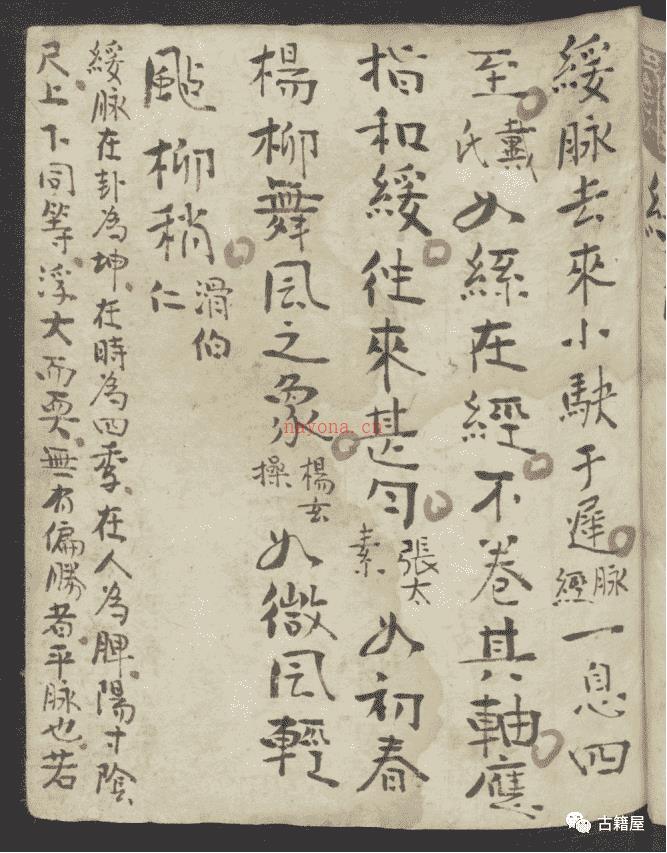 緩脉去來小駃于遲脉經一息四
至戴氏如絲在經不卷其軸應
指和緩往來甚匀張太素如初春
楊柳舞風之象楊玄操如微風輕
颭柳稍滑伯仁
緩脉在卦為坤在時為四季在人為脾陽寸陰
尺上下同等浮大而耎無有偏勝者平脉也若
nayona.cn
古籍屋